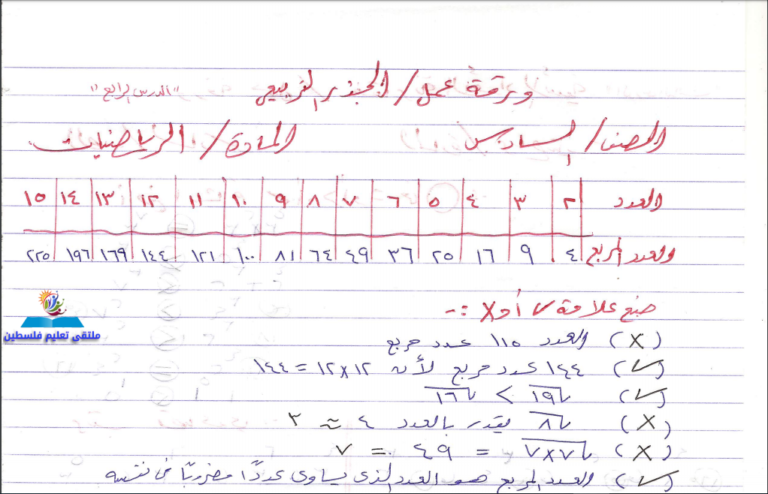 ورقة عمل / الجذر التربيعي "الدرس الرابع"
الصف / السادس المادة / الرياضيات
العدد ٢ ٣ ٤ ٥ ٦ ٧ ٨ ٩ ١٠ ١١ ١٢ ١٣ ١٤ ١٥
والعدد المربع ٤ ٩ ١٦ ٢٥ ٣٦ ٤٩ ٦٤ ٨١ ١٠٠ ١٢١ ١٤٤ ١٦٩ ١٩٦ ٢٢٥
ضع علامة √ أو X :-
(X) العدد ١١٥ عدد مربع
(✓) ١٤٤ عدد مربع لأن ١٢×١٢ = ١٤٤
(✓) √١٩ > √١٦
(X) √٨ يقدر بالعدد ٤ ≈ ٣
(X) √٧×٧ = ٤٩ = ٧
(✓) العدد المربع هو العدد الذي يساوي عددًا مضروبًا في نفسه
ملتقى تعليم فلسطين